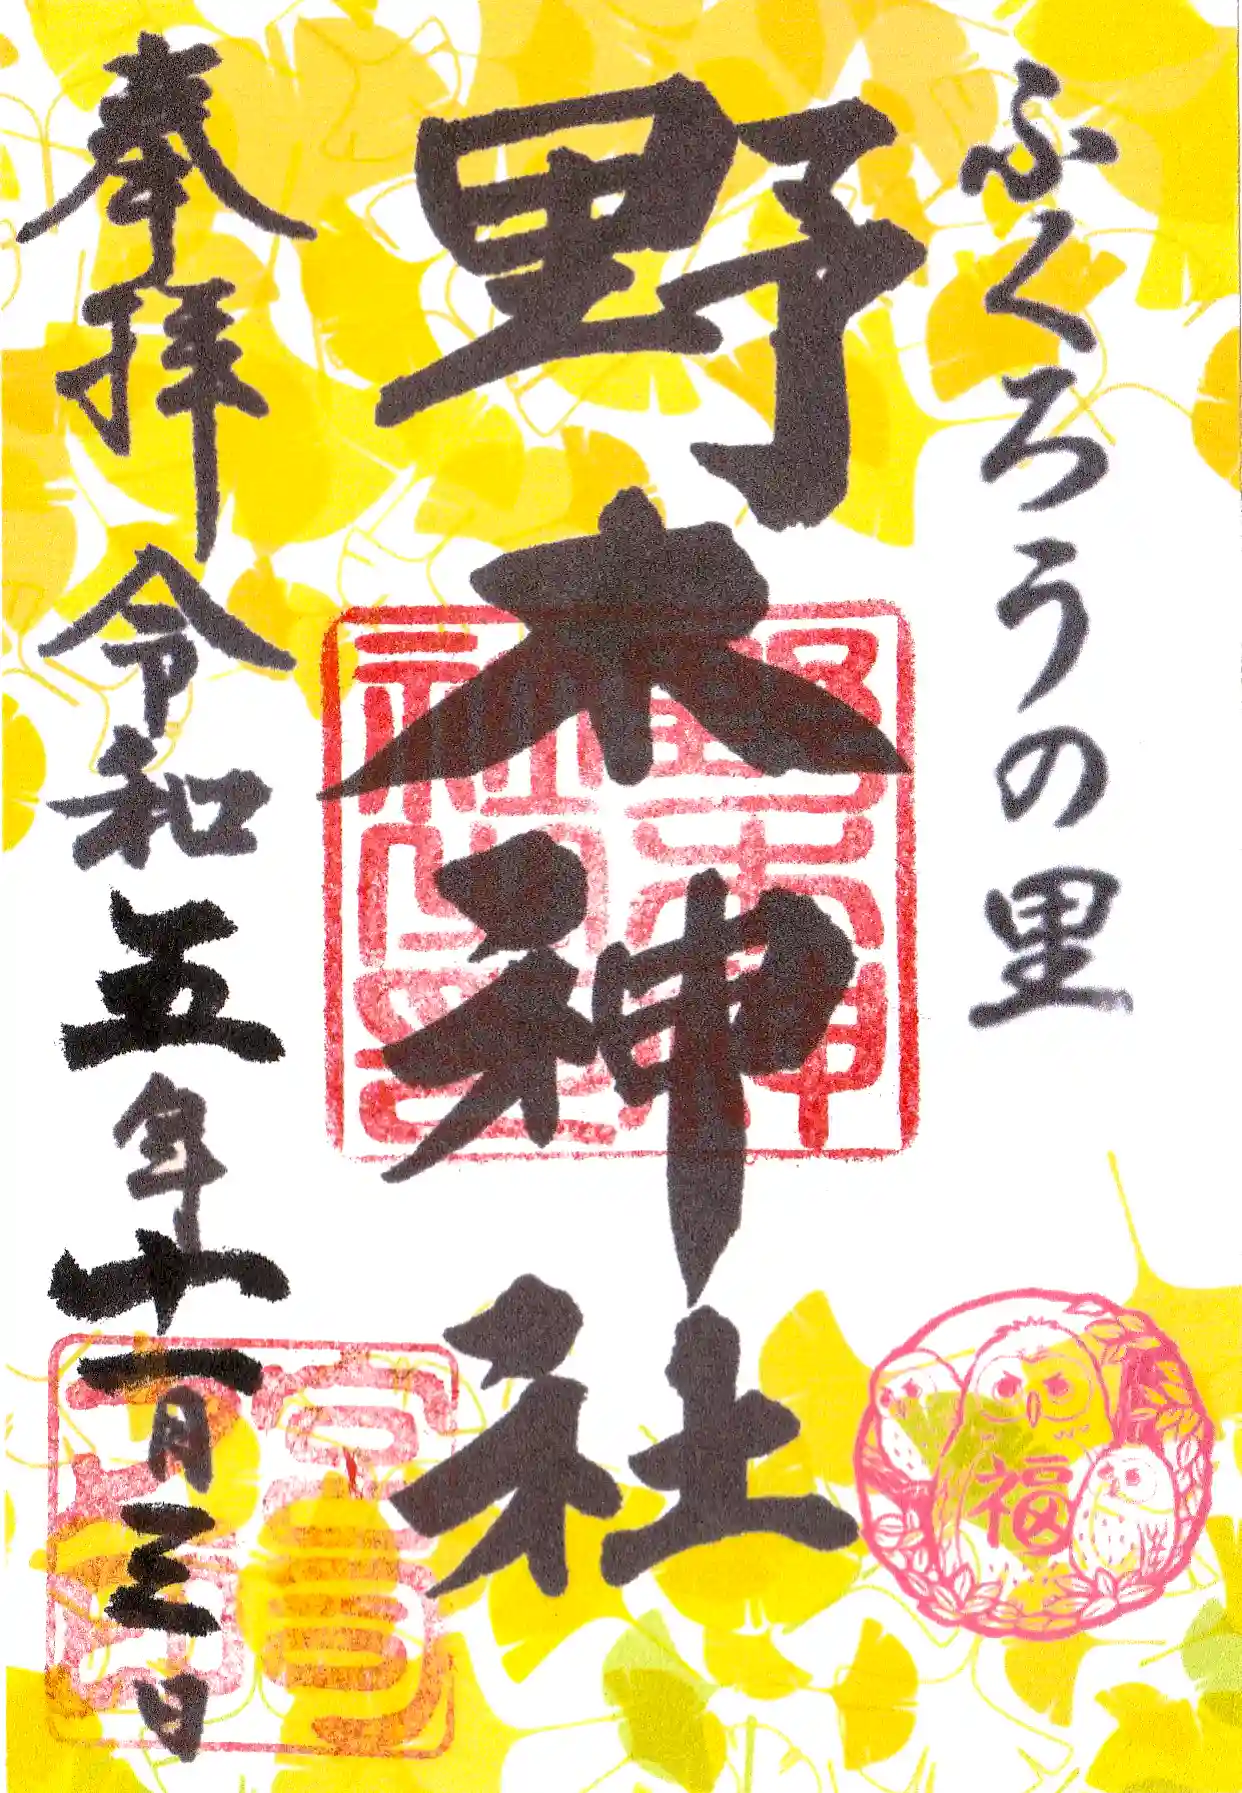 ふくろうの里
野木神社
野木神社之印
福
奉拝 令和五年十一月三日